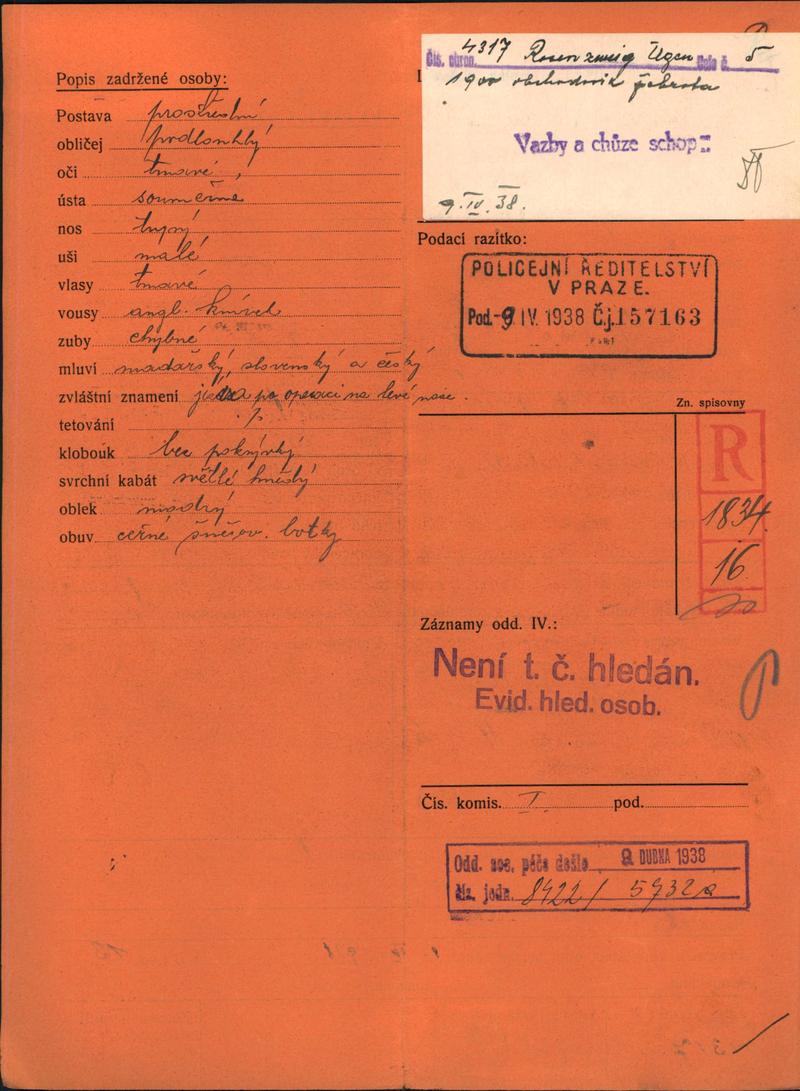 Popis zadržené osoby:
Postava prostřední
obličej podlouhlý
oči tmavé,
ústa souměrná
nos tupý
uši malé
vlasy tmavé
vousy angl. knírek
zuby chybné
mluví maďarský, slovenský a český
zvláštní znamení po operaci na levé noze.
tetování
klobouk bez pokrývky
svrchní kabát světlé hnědý
oblek modrý
obuv černé botky
Čís. chron. 4317 Rosenzweig Ugen Čelo č. 5
1900 obchodník žebrota
Vazby a chůze schop
9. IV. 38.
Podací razítko:
POLICEJNÍ ŘEDITELSTVÍ
V PRAZE.
Pod. -9. IV. 1938 Č.j. 157163
Zn. spisovny
R
1834
16
Záznamy odd. IV.:
Není t. č. hledán.
Evid. hled. osob.
Čís. komis. I. pod.
Odd. soc. péče došlo 9. DUBNA 1938
čís. jedn. 8422/ 5932a